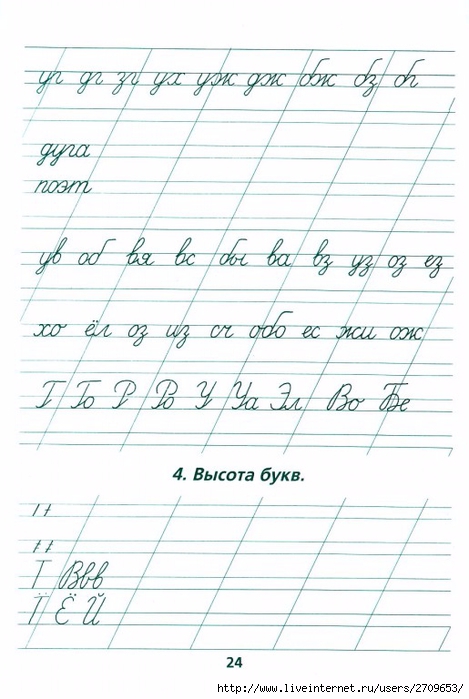 уг дг зг ух уж дж бж бз бг
дуга
поэт
ув об вя вс бы ва вз уз оз ез
хо ёл оз из сч обо ес жи ож
Г Го Р Ро У Уа Эл Во Бе
4. Высота букв.
Г Ввв
Ї Ё Й
24
http://www.liveinternet.ru/users/2709653/